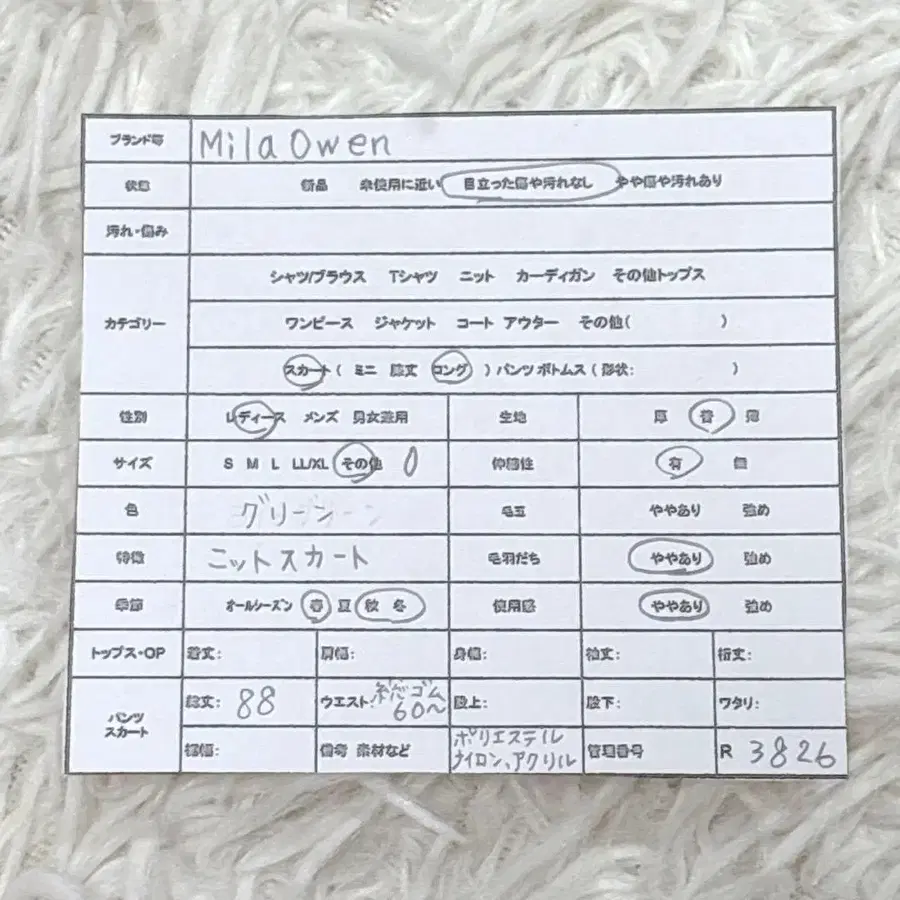 ブランド等 Mila Owen
状態 新品 未使用に近い 目立った傷や汚れなし やや傷や汚れあり
汚れ・傷み
カテゴリー
シャツ/ブラウス Tシャツ ニット カーディガン その他トップス
ワンピース ジャケット コート アウター その他( )
スカート( ミニ 膝丈 ロング )パンツ ボトムス(形状: )
性別 レディース メンズ 男女兼用 生地 厚 普 薄
サイズ S M L LL/XL その他 0 伸縮性 有 無
色 グリーン 毛玉 ややあり 強め
特徴 ニットスカート 毛羽だち ややあり 強め
季節 オールシーズン 春 夏 秋 冬 使用感 ややあり 強め
トップス・OP 着丈: 肩幅: 身幅: 袖丈: 裄丈:
パンツ
スカート
総丈: 88 ウエスト: ゴム 60〜 股上: 股下: ワタリ:
裾幅: 備考 素材など ポリエステル
ナイロン、アクリル 管理番号 R 3826